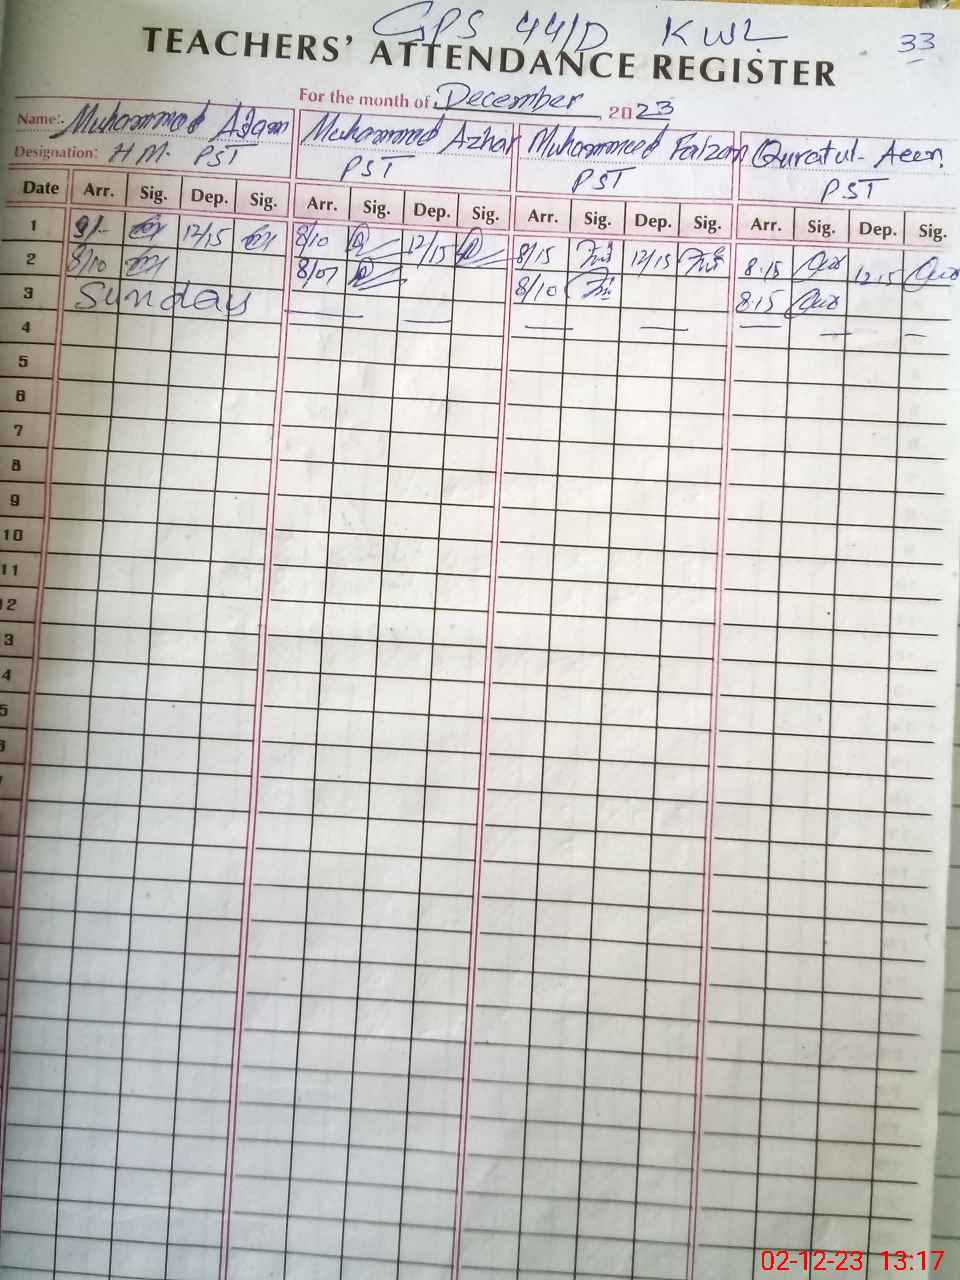 GPS 44/D KWL
33
TEACHERS' ATTENDANCE REGISTER
For the month of December 2023
Name:. Muhammad Azam Muhammad Azhar Muhammad Faizan Quratul-Aeen
Designation: HM. PST PST PST PST
Date Arr. Sig. Dep. Sig. Arr. Sig. Dep. Sig. Arr. Sig. Dep. Sig. Arr. Sig. Dep. Sig.
1 9/- 12/15 8/10 12/15 8/15 12/15 8.15 12.15
2 8/10 8/07 8/10 8.15
3 Sunday
4
5
6
7
8
9
10
11
12
3
4
5
02-12-23 13:17